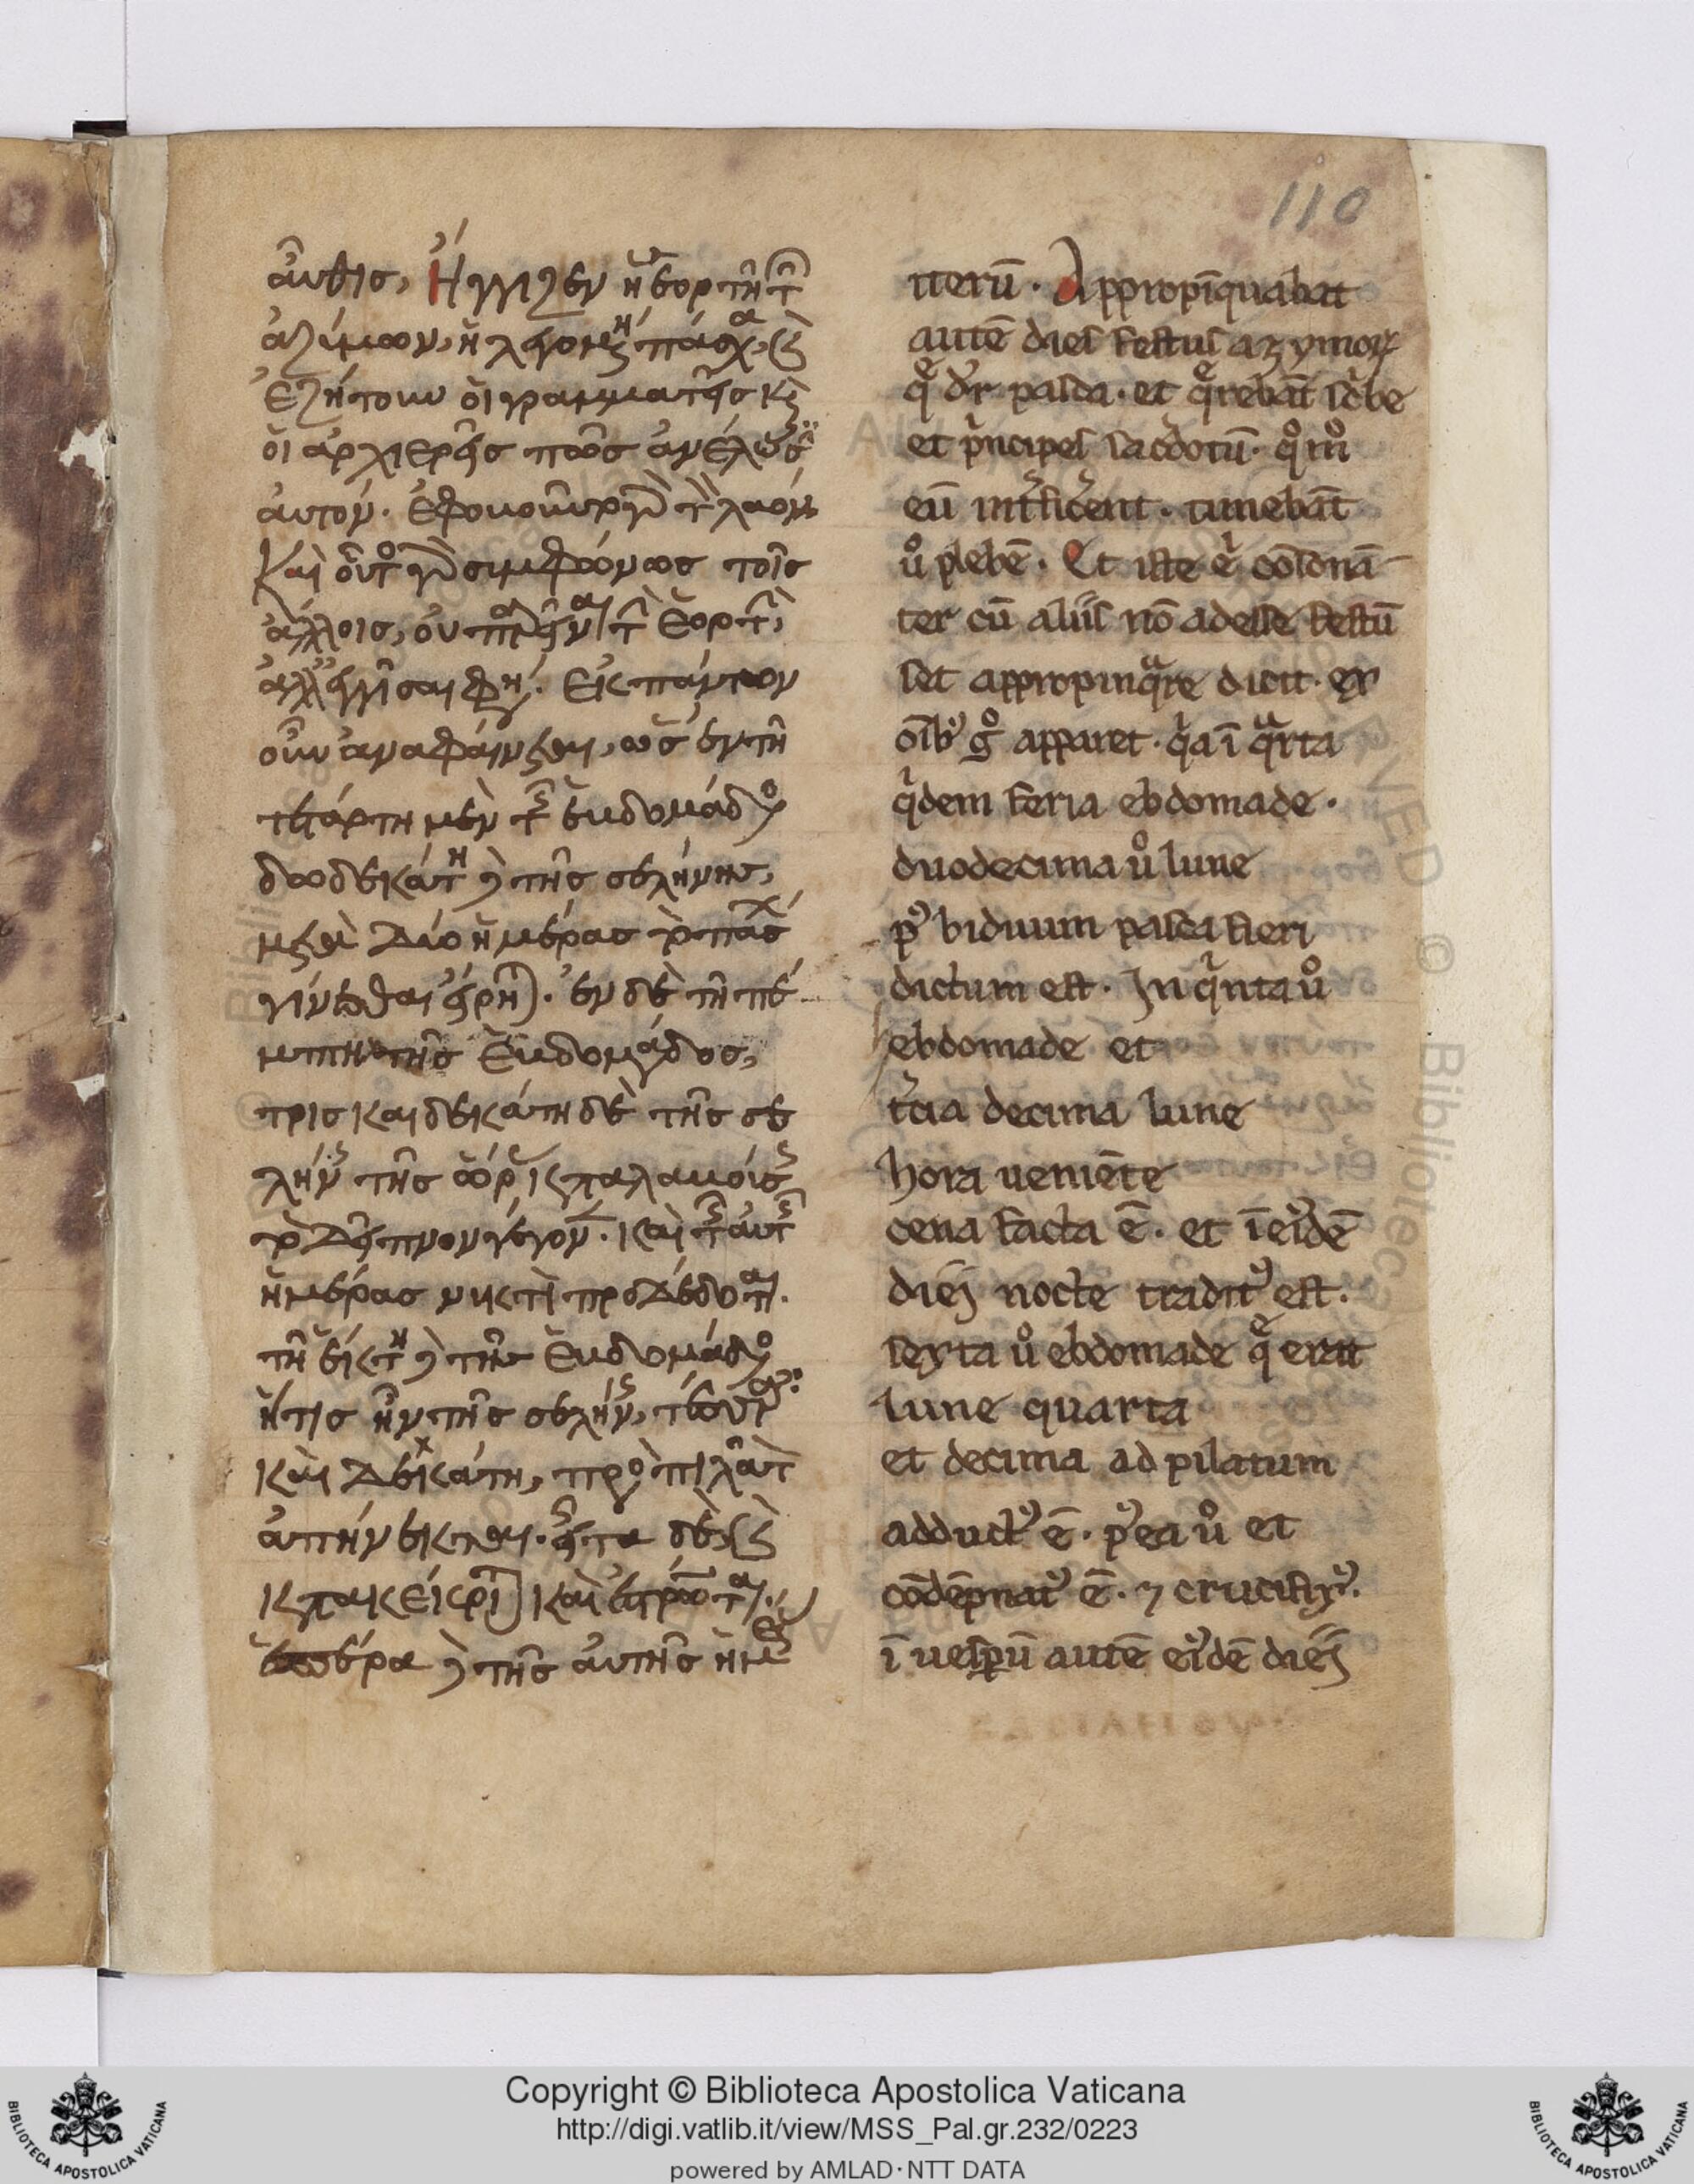 110
αὖθις, Ἤγγιζεν ἡ ἑορτὴ τ
ἀζύμων, ἡ λεγομένη πάσχα, καὶ
ἐζήτουν οἱ γραμματεῖς καὶ
οἱ ἀρχιερεῖς πῶς ἀνέλωσ
αὐτόν. ἐφοβοῦντο γὰρ τὸν λαόν
Καὶ οὗτος γὰρ συμφώνως τοῖς
ἄλλοις, οὐ παρεῖναι τὴν ἑορτὴν,
ἀλλ' ἐγγίσαι φησί. Ἐκ πάντων
οὖν ἀναφαίνεται, ὡς ἐν τῇ
τετάρτῃ μὲν τῆς ἑβδομάδος
δωδεκάτῃ δὲ τῆς σελήνης,
μετὰ δύο ἡμέρας τὸ πάσχα
γίνεσθαι εἴρηται. ἐν δὲ τῇ πέ-
μπτῃ τῆς ἑβδομάδος,
τρισκαιδεκάτῃ δὲ τῆς σε
λήνης τῆς ὥρας καταλαβούσης
τὸ δεῖπνον γέγονε. καὶ τῆς αὐτῆς
ἡμέρας νυκτὶ προδέδοται.
τῇ ἕκτῃ δὲ τῆς ἑβδομάδος
ἥτις ἦν τῆς σελήνης, τεσσαρ
και δεκάτη, πρὸς πιλάτον
ἀπήνεκται. εἶτα δὲ καὶ
κατακέκριται καὶ ἐσταύρωται.
ἑσπέρα δὲ τῆς αὐτῆς ἡμέ
iterū. Appropīquabat
autē dies festus azymoꝝ
q̄ dr pasca. et q̄rebāt scbe
et pncipes sacdotū. qm̊
eū intficent. timebāt
ů plebē. Et iste ē cōsonā
ter cū aliis nō adesse festū
set appropinqre dicit. ex
oīb; g̊ apparet. qa ī qrta
qdem feria ebdomade.
duodecima ů lune
p᾽ biduum pasca fieri
dictum est. In qnta ů
hebdomade et
tcia decima lune
hora ueniēte
cena facta ē. et ī eidē
diei nocte tradit᾽ est.
sexta ů ebdomade q̄ erat
lune quarta
et decima ad pilatum
adduct᾽ ē. p᾽ ea ů et
cōdēpnat᾽ ē. ⁊ crucifix᾽.
ī uesꝑū autē eidē diei
Copyright © Biblioteca Apostolica Vaticana
http://digi.vatlib.it/view/MSS_Pal.gr.232/0223
powered by AMLAD·NTT DATA
BIBLIOTECA APOSTOLICA VATICANA
BIBLIOTECA APOSTOLICA VATICANA